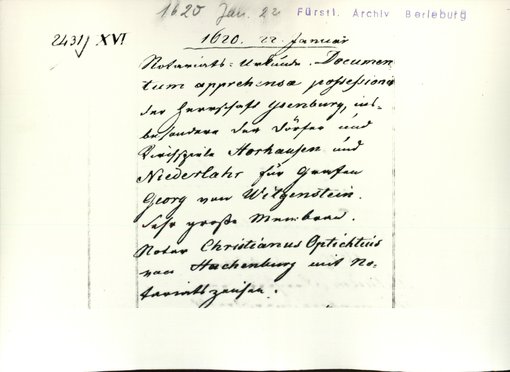 1620 Jan. 22 Fürstl. Archiv Berleburg
2431) XVI
1620. 22. Januar
Notariats-Urkunde. Documen
tum apprehensae possessionis
der Herrschaft Ysenburg, ins-
besondere der Dörfer und
Kirchspiele Horhausen und
Niederlahr für Grafen
Georg von Witgenstein.
Sehr große Membrane.
Notar Christianus Optichtius
von Hachenburg mit No-
tariatszeichen.